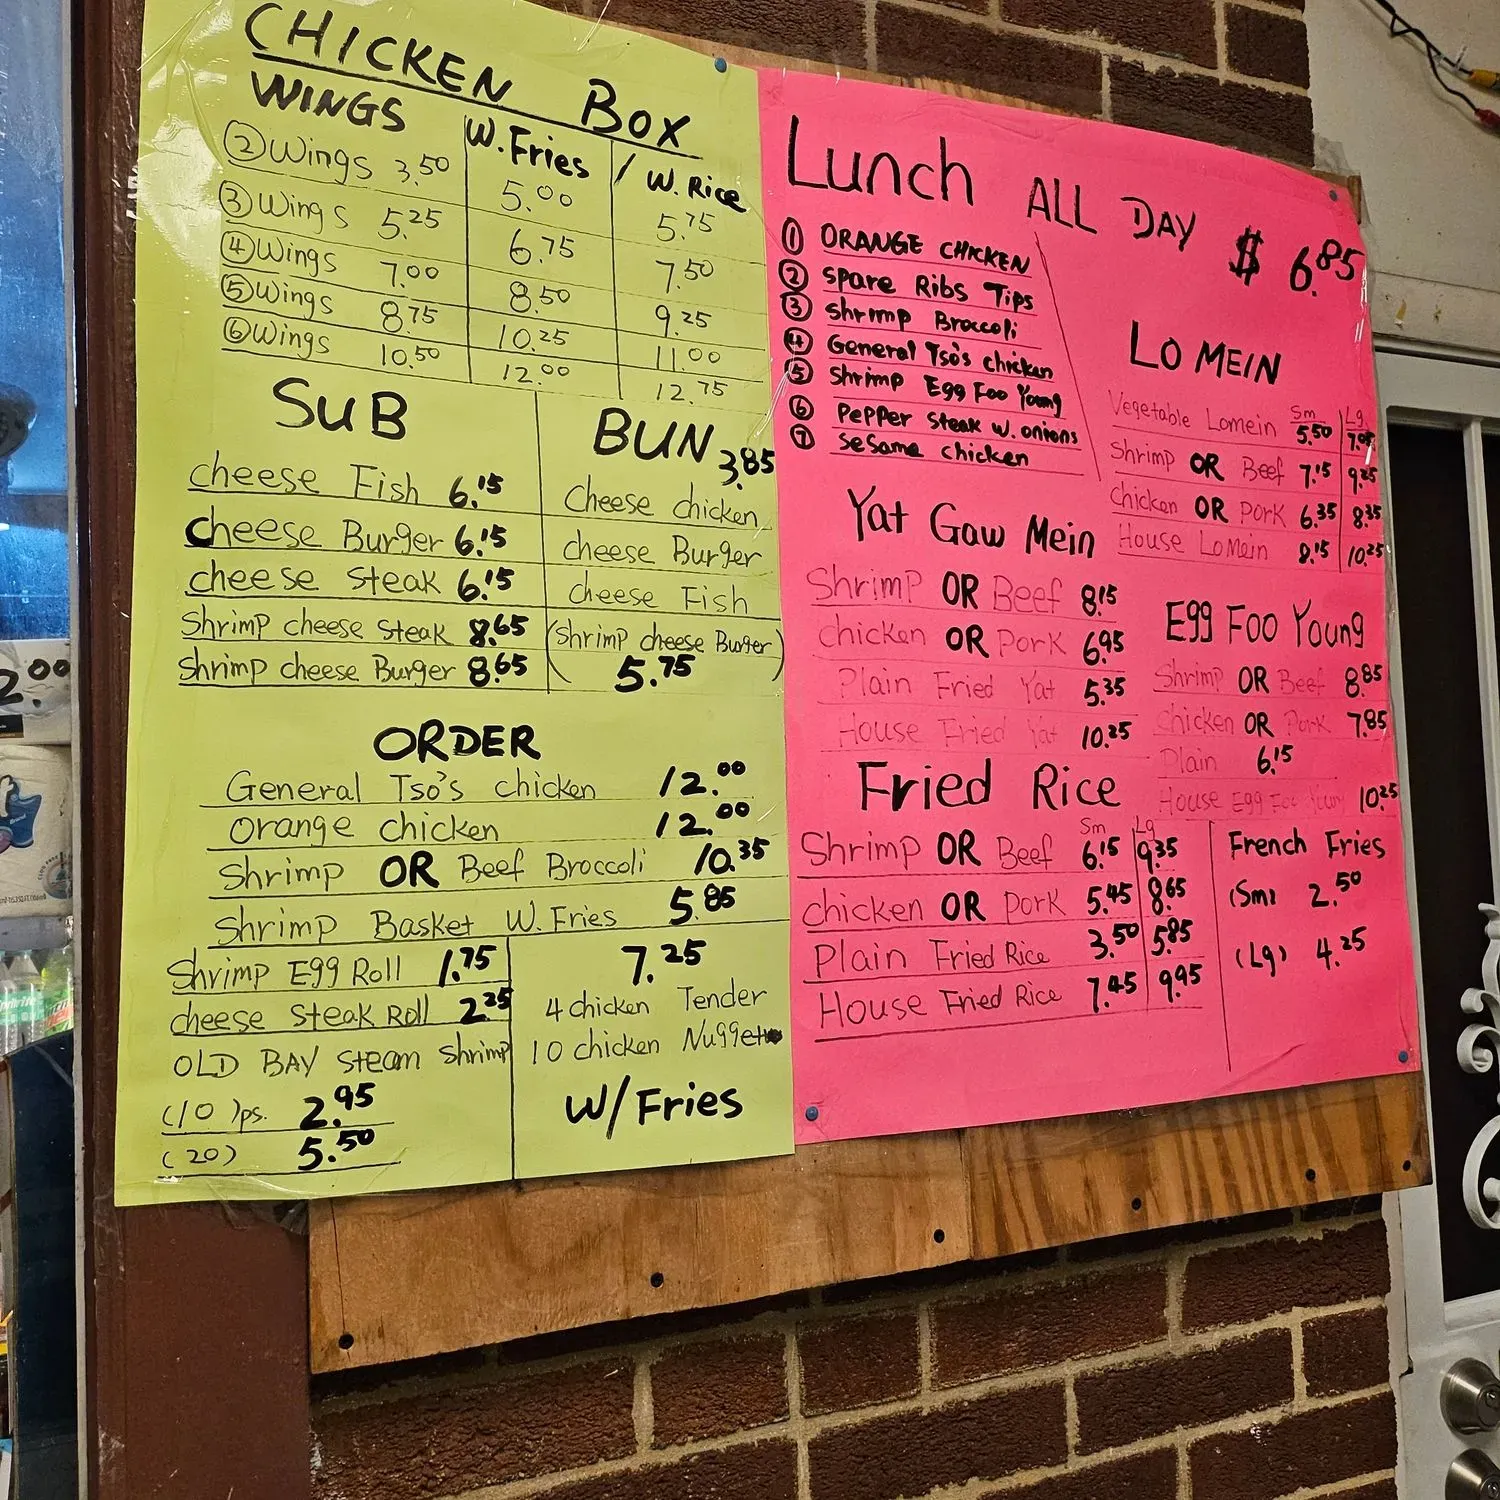 CHICKEN BOX
WINGS W. Fries / W. Rice
② Wings 3.50 5.00 5.75
③ Wings 5.25 6.75 7.50
④ Wings 7.00 8.50 9.25
⑤ Wings 8.75 10.25 11.00
⑥ Wings 10.50 12.00 12.75
SUB
cheese Fish 6.15
cheese Burger 6.15
cheese steak 6.15
Shrimp cheese steak 8.65
Shrimp cheese Burger 8.65
BUN 3.85
Cheese chicken
cheese Burger
cheese Fish
(Shrimp cheese Burger)
5.75
ORDER
General Tso's chicken 12.00
orange chicken 12.00
Shrimp OR Beef Broccoli 10.35
Shrimp Basket W. Fries 5.85
Shrimp Egg Roll 1.75
cheese steak Roll 2.25
OLD BAY steam shrimp
(10)ps. 2.95
(20) 5.50
7.25
4 chicken Tender
10 chicken Nugget
W/Fries
Lunch ALL DAY $ 6.85
① ORANGE CHICKEN
② spare Ribs Tips
③ shrimp Broccoli
④ General Tso's chicken
⑤ Shrimp Egg Foo Young
⑥ Pepper steak w. onions
⑦ seSame chicken
LO MEIN
Sm Lg
Vegetable Lomein 5.50 7.05
Shrimp OR Beef 7.15 9.25
chicken OR Pork 6.35 8.35
House LoMein 8.15 10.25
Yat Gaw Mein
Shrimp OR Beef 8.15
chicken OR Pork 6.95
Plain Fried Yat 5.35
House Fried Yat 10.25
Egg Foo Young
Shrimp OR Beef 8.85
chicken OR Pork 7.85
Plain 6.15
House Egg Foo Young 10.25
Fried Rice
Sm Lg
Shrimp OR Beef 6.15 9.35
chicken OR Pork 5.45 8.65
Plain Fried Rice 3.50 5.85
House Fried Rice 7.45 9.95
French Fries
(Sm) 2.50
(Lg) 4.25
2.00